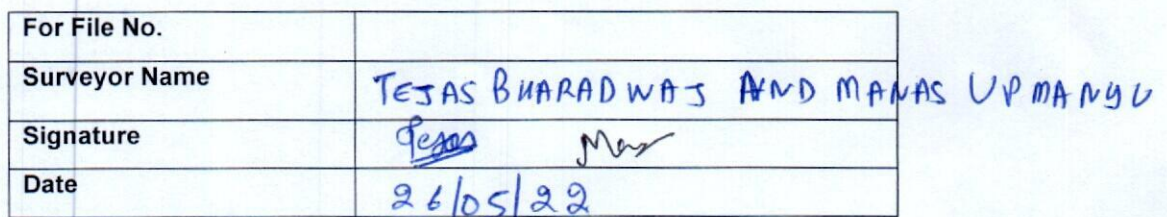 For File No.
Surveyor Name TEJAS BHARADWAJ AND MANAS UPMANYU
Signature Tejas
Date 26/05/22